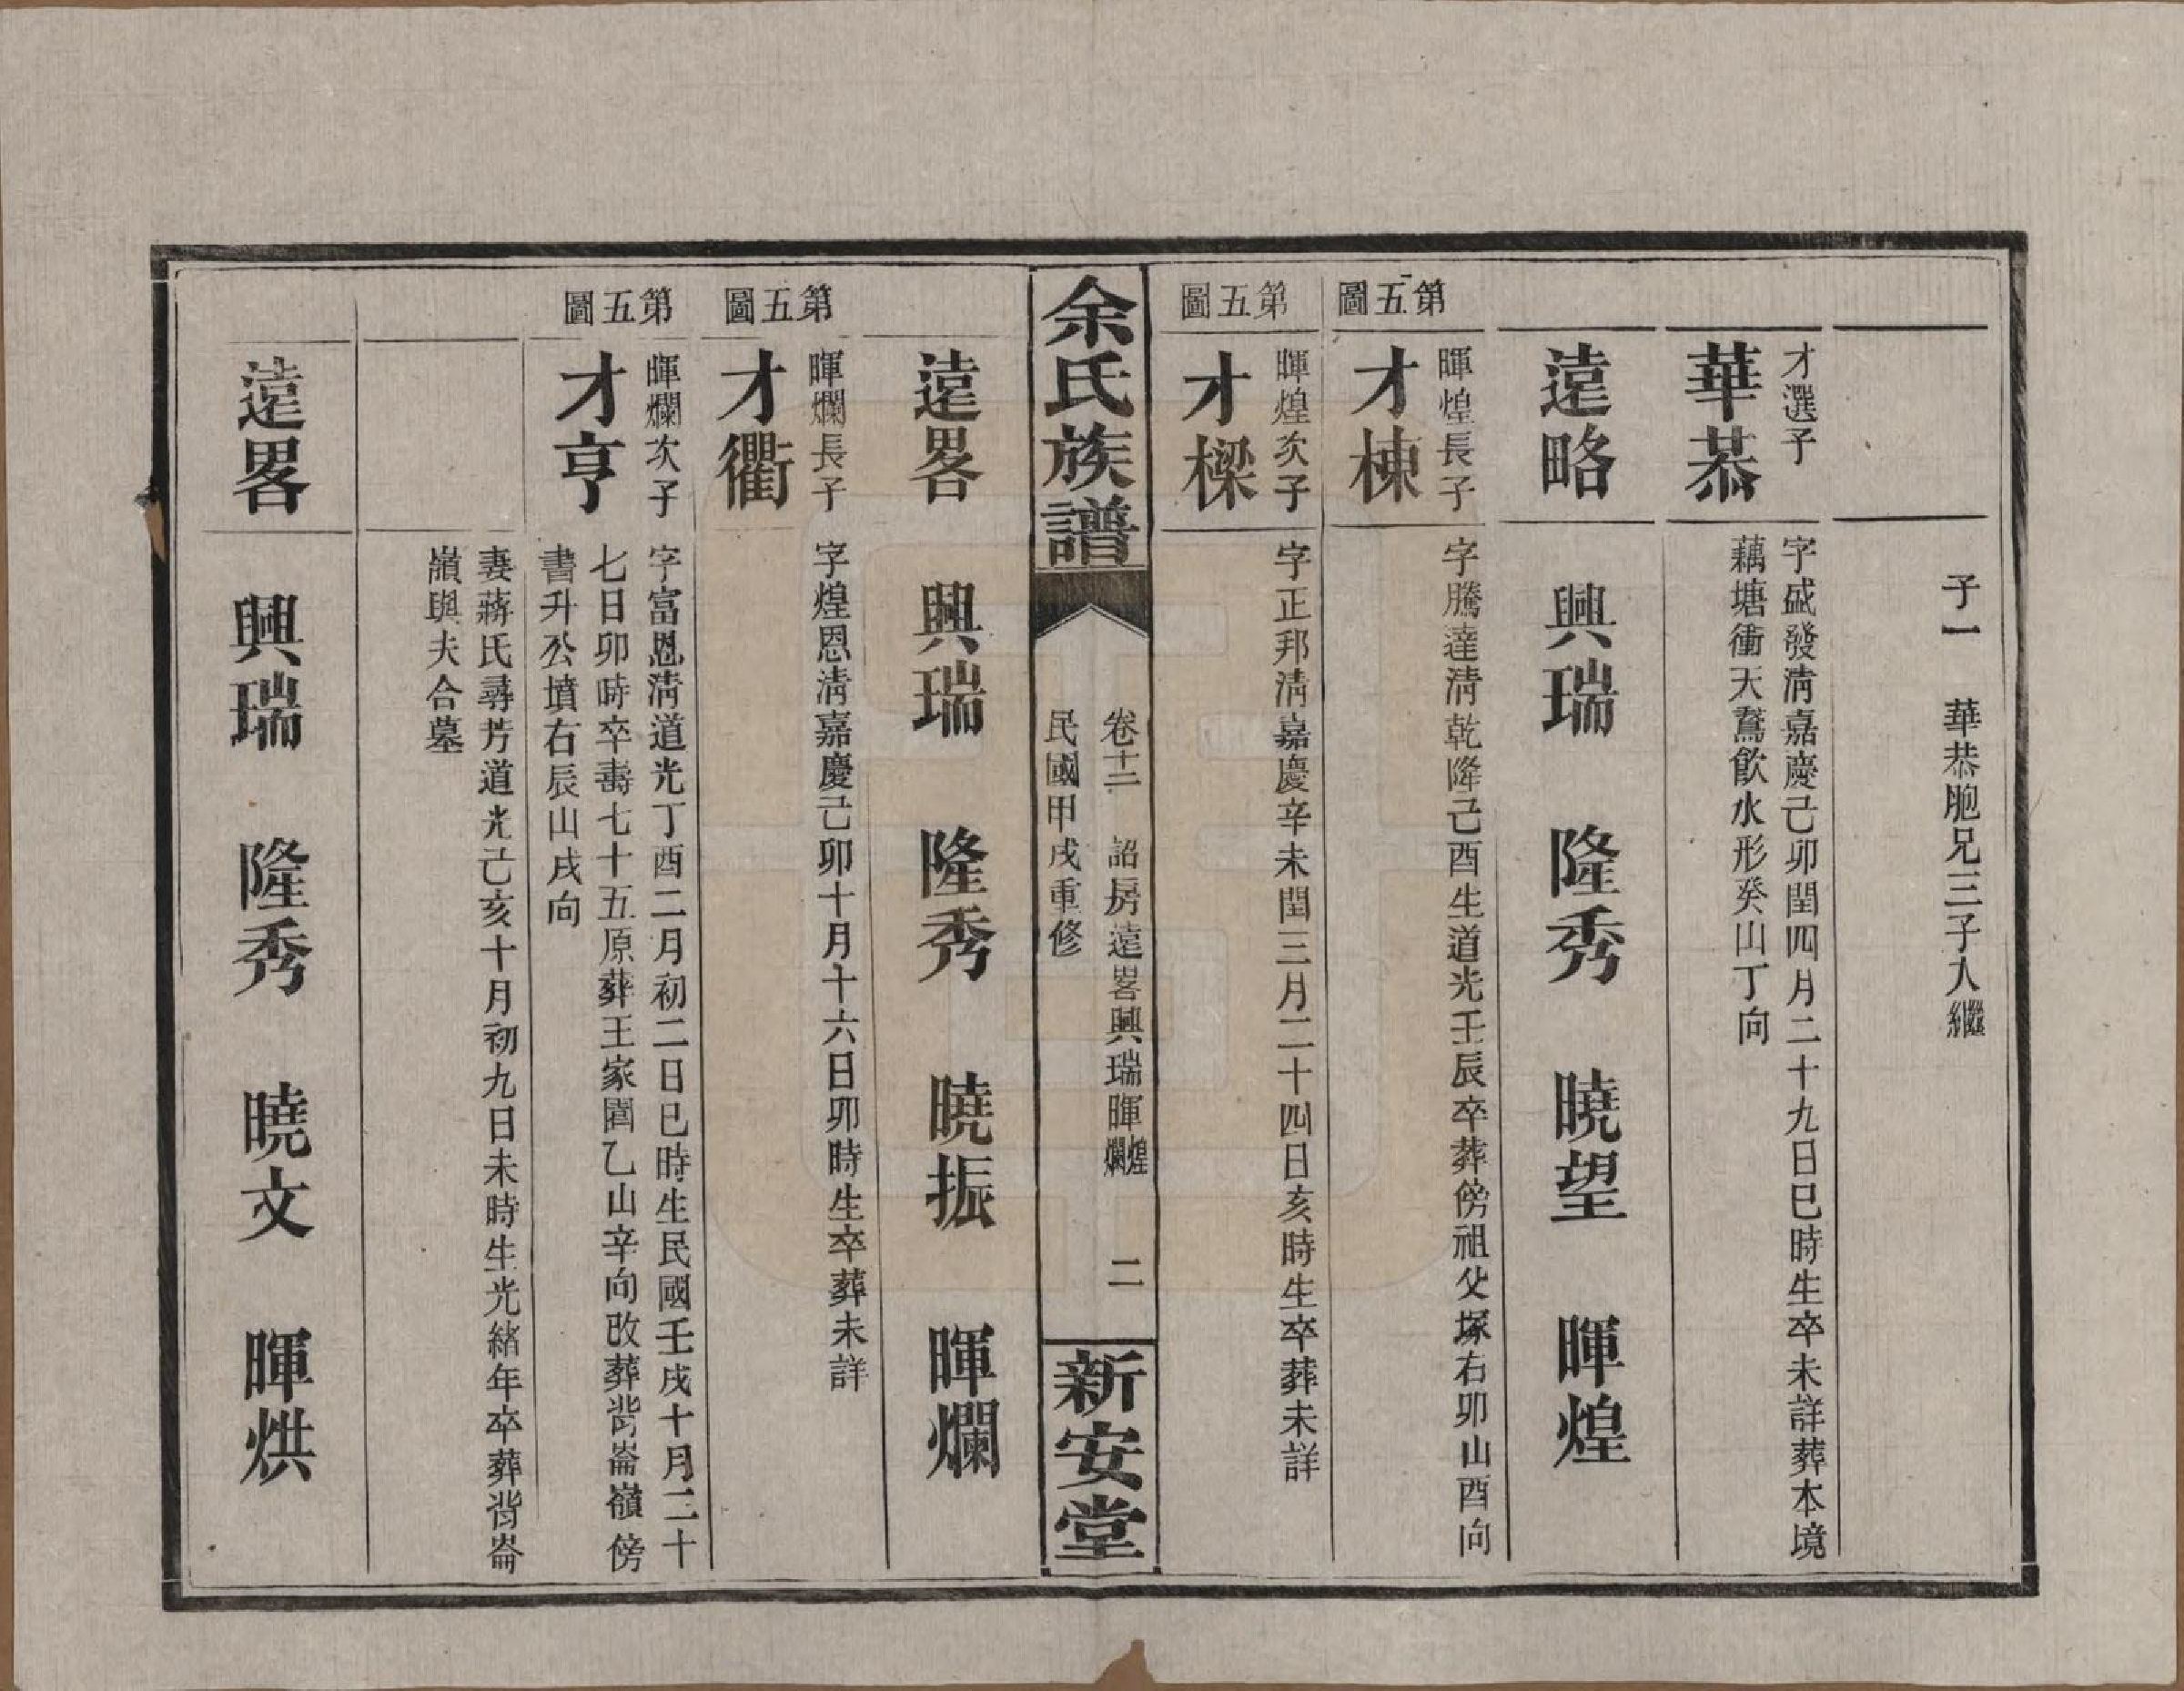 子一　華恭胞兄三子入繼
才選子
華恭
字盛發清嘉慶己卯閏四月二十九日巳時生卒未詳葬本境
藕塘衝天鵞飲水形癸山丁向
遠略　興瑞　隆秀　曉望　暉煌
第五圖
暉煌長子
才棟
字騰達清乾隆己酉生道光壬辰卒葬傍祖父塚右卯山酉向
第五圖
暉煌次子
才樑
字正邦清嘉慶辛未閏三月二十四日亥時生卒葬未詳
余氏族譜
卷十二　詔房遠畧興瑞暉煌爛　二
民國甲戌重修
新安堂
遠畧　興瑞　隆秀　曉振　暉爛
第五圖
暉爛長子
才衢
字煌恩清嘉慶己卯十月十六日卯時生卒葬未詳
第五圖
暉爛次子
才亨
字富恩清道光丁酉二月初二日巳時生民國壬戌十月二十
七日卯時卒壽七十五原葬王家園乙山辛向改葬背崙嶺傍
書升公墳右辰山戌向
妻蔣氏尋芳道光己亥十月初九日未時生光緒年卒葬背崙
嶺與夫合墓
遠畧　興瑞　隆秀　曉文　暉烘